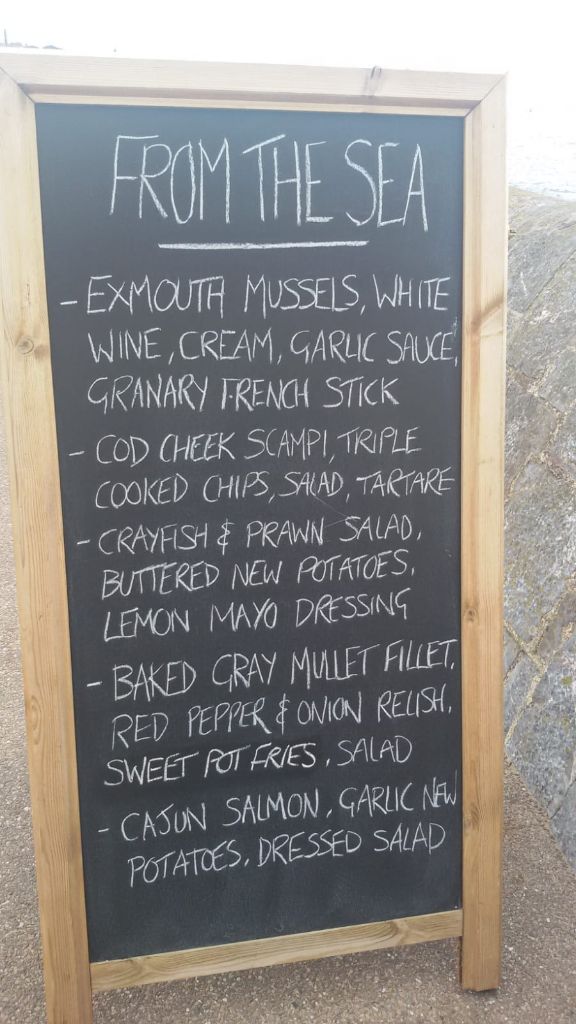 FROM THE SEA
- EXMOUTH MUSSELS, WHITE
WINE, CREAM, GARLIC SAUCE,
GRANARY FRENCH STICK
- COD CHEEK SCAMPI, TRIPLE
COOKED CHIPS, SALAD, TARTARE
- CRAYFISH & PRAWN SALAD,
BUTTERED NEW POTATOES,
LEMON MAYO DRESSING
- BAKED GRAY MULLET FILLET,
RED PEPPER & ONION RELISH,
SWEET POT FRIES, SALAD
- CAJUN SALMON, GARLIC NEW
POTATOES, DRESSED SALAD